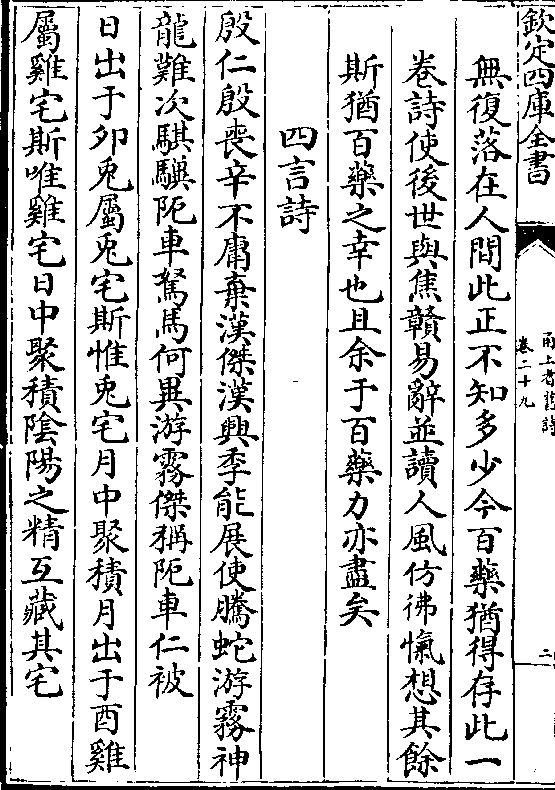 欽定四庫全書
甬上耆舊詩
卷二十九
二
無復落在人間此正不知多少今百藥猶得存此一
卷詩使後世與焦贛易辭並讀人風仿彿愾想其餘
斯猶百藥之幸也且余于百藥力亦盡矣
四言詩
殷仁殷喪辛不庸棄漢傑漢興季能展使騰蛇游霧神
龍難次騏驥阨車駑馬何異游霧傑稱阨車仁被
日出于卯兎屬兎宅斯惟兎宅月中聚積月出于酉雞
屬雞宅斯唯雞宅日中聚積陰陽之精互藏其宅